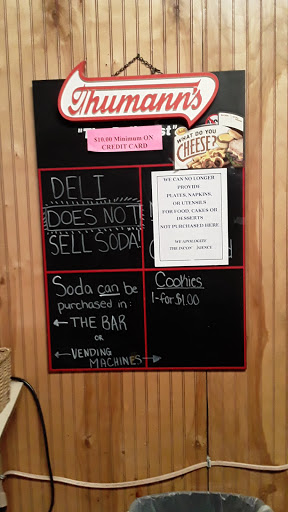 Thumann's
$10.00 Minimum ON
CREDIT CARD
WHAT DO YOU
CHEESE?
DELI
DOES NOT
SELL SODA!
WE CAN NO LONGER
PROVIDE
PLATES, NAPKINS,
OR UTENSILS
FOR FOOD, CAKES OR
DESSERTS
NOT PURCHASED HERE
WE APOLOGIZE
Soda can be
purchased in:
← THE BAR
OR
← VENDING
MACHINES →
Cookies
1-for $1.00